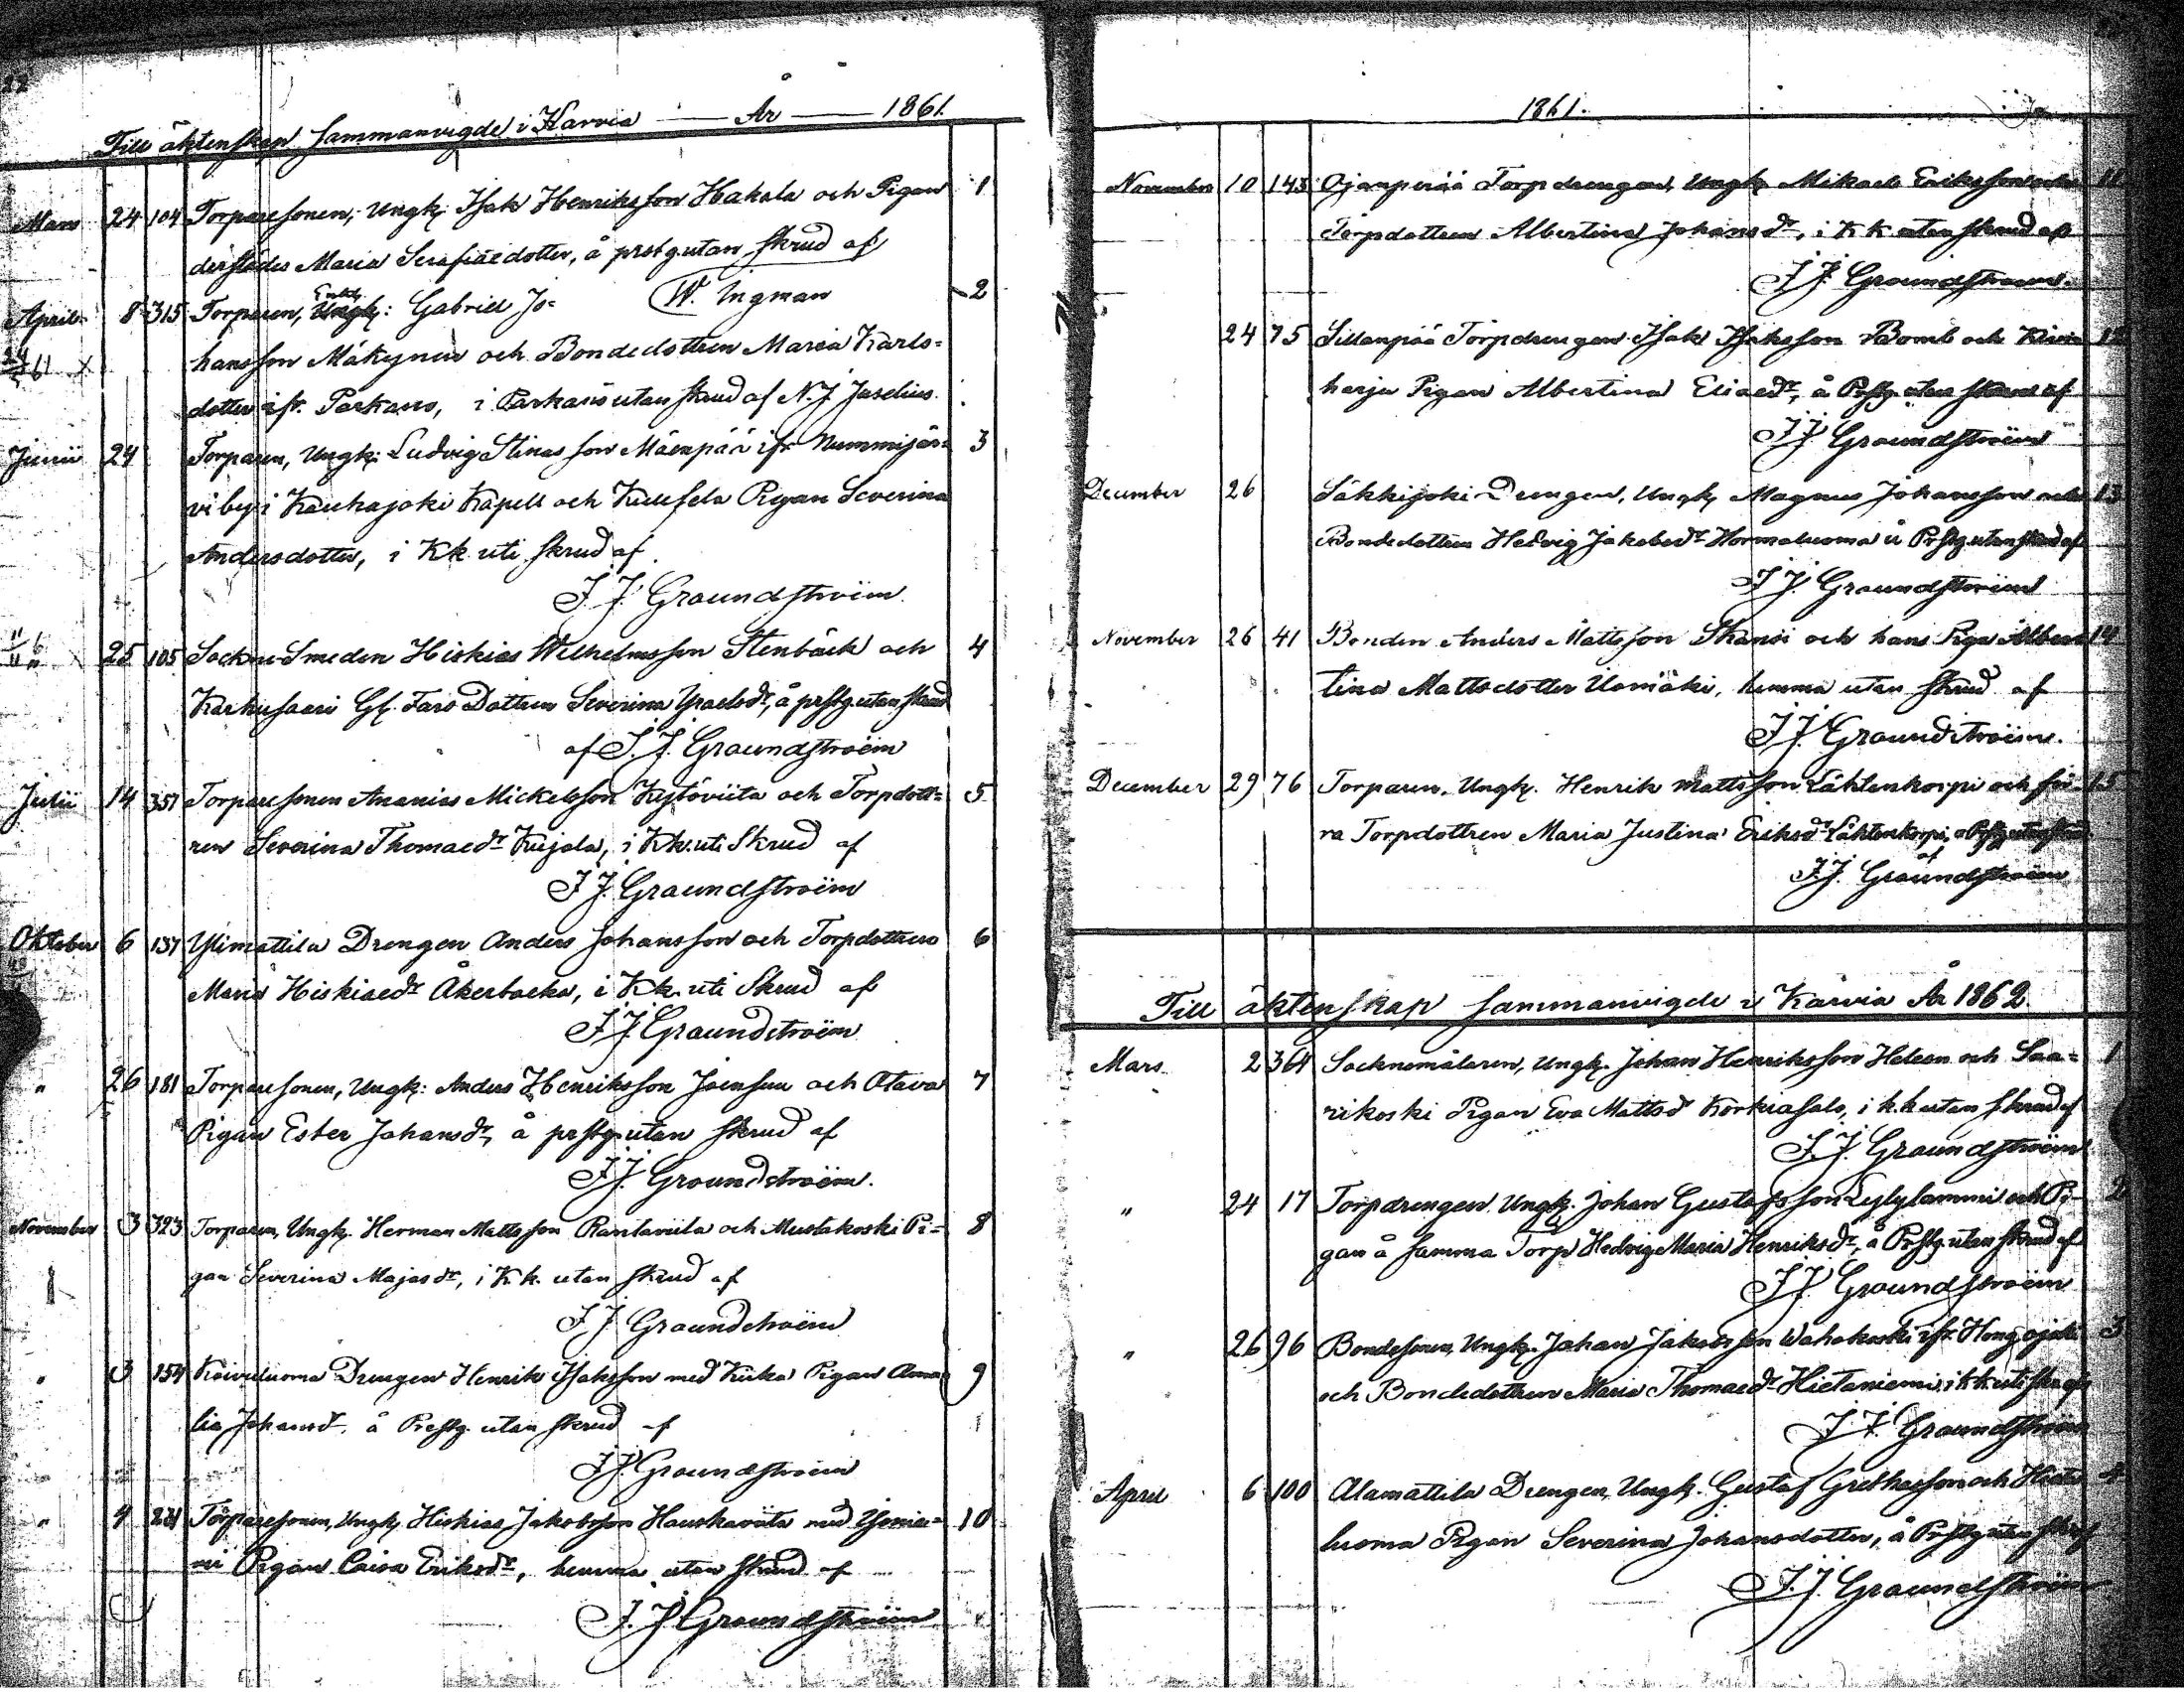 22
Till äktenskap Sammanvigde i Karvia — År — 1861.
Mars 24 104 Torparesonen, Ungk. Isak Henriksson Hakala och Pigan 1
derstädes Maria Serafiaedotter, å prstg. utan skrud af
W. Ingman
April 8 315 Torparen, Enkl. Ungk: Gabriel Jo= 2
hansson Mäkynen och Bondedottren Maria Karls=
dotter ifr. Parkano, i Parkano utan skrud af N. J. Jaselius.
Junii 24 Torparen, Ungk: Ludvig Stinasson Mäenpää ifr Nummijär= 3
vi by i Kauhajoki Kapell och Pigan Severina
Andersdotter, i Kk uti skrud af
J. J. Graundstroëm.
25 105 Sockne-Smeden Hiskias Wilhelmsson Stenbäck och 4
Karhusaari Gl. Fars Dottren Severina Israelsdr, å prstg. utan skrud
af J. J. Graundstroëm
Julii 14 351 Torparesonen Ananias Mickelsson Kytöviita och Torpdott= 5
ren Severina Thomaedr Kujala, i Kk. uti Skrud af
J J. Graundstroëm
Oktober 6 137 Ylimattila Drengen Anders Johansson och Torpdottren 6
Maria Hiskiaedr Åkerbacka, i Kk. uti Skrud af
J J Graundstroëm
" 26 181 Torparesonen, Ungk: Anders Henriksson Joensuu och Otava 7
Pigan Ester Johansdr, å prstg. utan skrud af
J J. Graundstroëm.
November 3 323 Torparen, Ungk. Herman Mattsson Rantaviita och Mustakoski Pi= 8
gan Severina Majasdr, i Kk. utan skrud af
J J Graundstroëm
" 3 154 Koivuluoma Drengen Henrik Isaksson med Kiika Pigan Ama 9
lia Johansdr. å Prestg. utan skrud af
J J. Graundstroëm
" 4 221 Torparesonen, Ungk. Hiskias Jakobsson Hauskaviita med 10
Pigan Caisa Eriksdr, hemma utan skrud af
J. J. Graundstroëm
1861.
November 10 143 Ojanperää Torpdrengen, Ungk Mikael Eriksson och 11
Torpdottren Albertina Johansdr, i KK utan skrud af
J J. Graundstroëm.
24 75 Sillanpää Torpdrengen Isak Isaksson Bomb och Kivi 12
harju Pigan Albertina Eliaedr, å Prstg. utan skrud af
J J Graundstroëm
December 26 Säkkijoki Drengen, Ungk Magnus Johansson och 13
Bondedottren Hedvig Jakobsdr Hormaluoma å Prstg. utan skrud af
J J. Graundstroëm
November 26 41 Bonden Anders Mattsson Skansi och hans Piga Alber 14
tina Mattsdotter Uomäki, hemma utan skrud af
J J. Graundstroëm.
December 29 76 Torparen, Ungk. Henrik Mattsson Lähtenkorpi och för= 15
ra Torpdottren Maria Justina Eriksdr Lähtenkorpi, å Prstg. utan skrud
af
J. J. Graundstroëm
Till äktenskap Sammanvigde i Karvia År 1862.
Mars 2 364 Socknemålaren, Ungk. Johan Henriksson Heleen och Saa= 1
rikoski Pigan Eva Mattsdr Korkiasalo, i k.k utan skrud af
J. J. Graundstroëm
" 24 17 Torpdrengen Ungk. Johan Gustafsson Lylylammi och Pi= 2
gan å samma Torp Hedvig Maria Henriksdr, å Prstg. utan skrud af
J J. Graundstroëm
" 26 96 Bondesonen, Ungk. Johan Jakobsson Wahokoski ifr. Hongojoki 3
och Bondedottren Maria Thomaedr Hietaniemi, i kk uti skr. af
J. J. Graundstroëm
April 6 100 Alamattila Drengen, Ungk. Gustaf Grethasson och 4
luoma Pigan Severina Johansdotter, å Prstg utan skr af
J. J. Graundstroëm